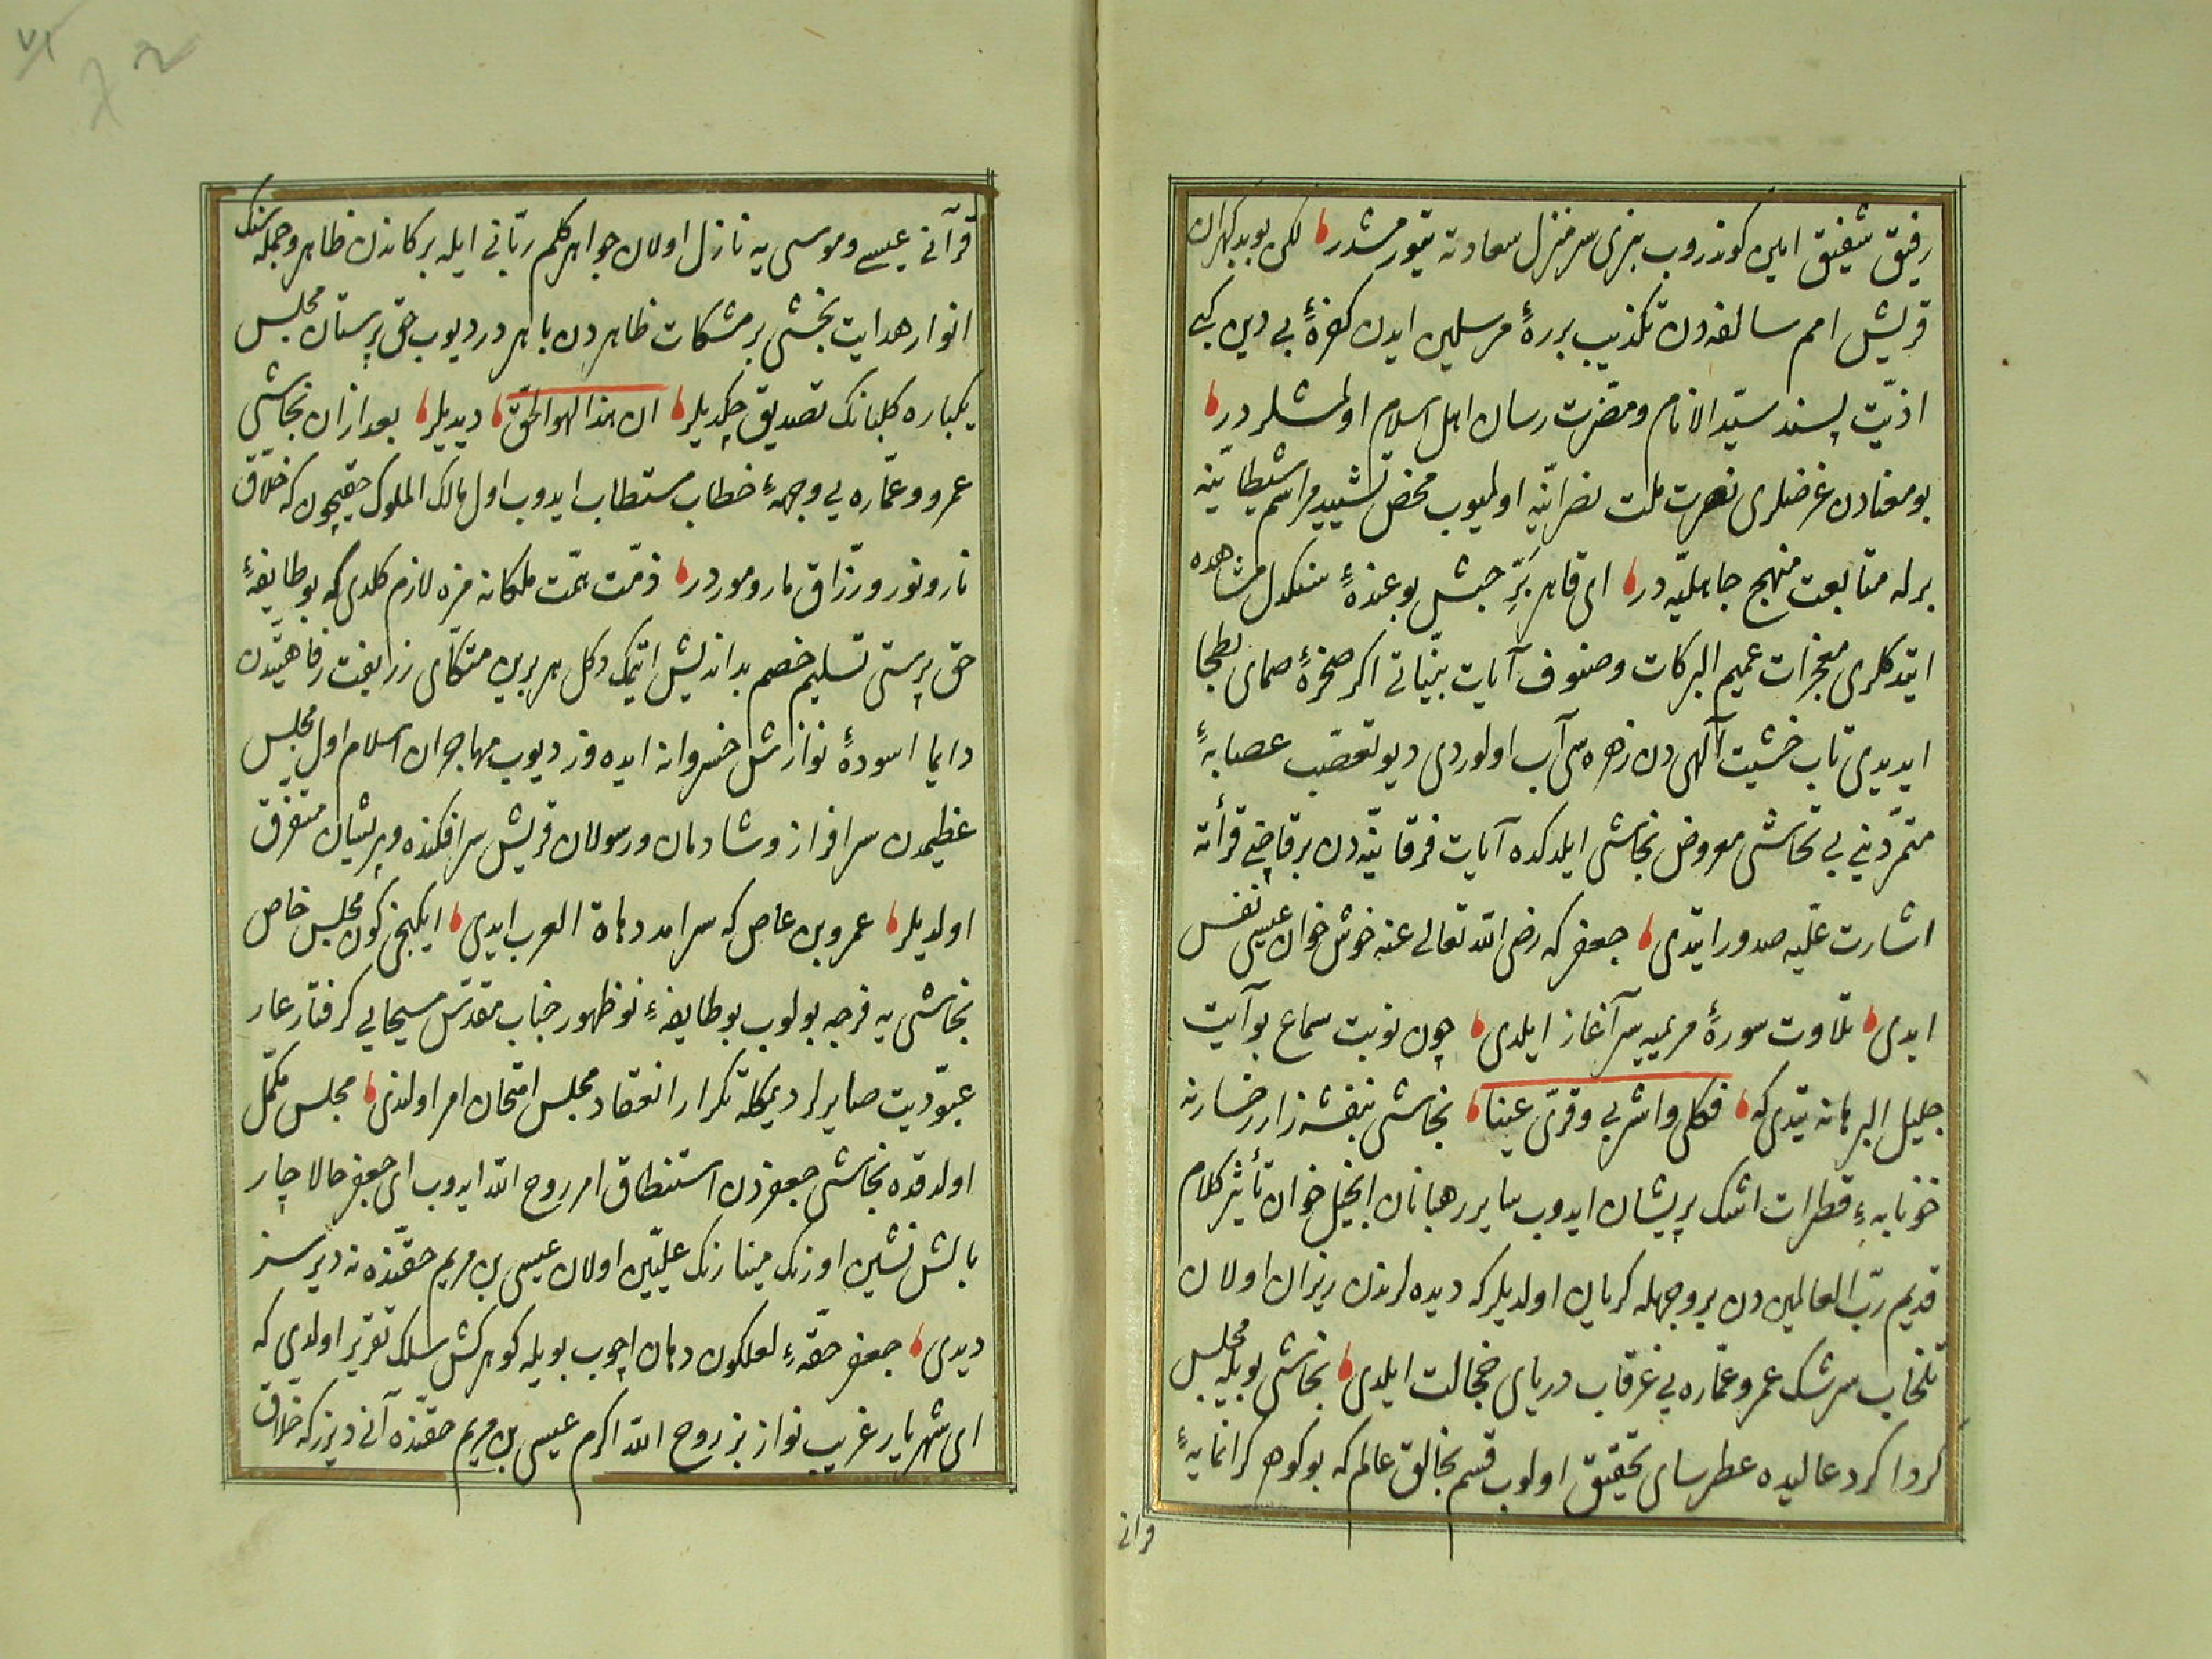 رفیق شفیق امین کوندروب بزی سر منزل سعادته یتورمشدر لکن بو بدکهران
قریش امم سالفه دن تکذیب بررهٔ مرسلین ایدن کفرهٔ بی دین کبی
اذیّت پسند سیّد الانام و مضرت رسان اهل اسلام اولمشلردر
بو معنادن غرضلری نصرت ملت نصرانیّه اولمیوب محض تشیید مراسم شیطانیّه
برله متابعت منهج جاهلیّه در ای قاهر برّ حبش بو عندهٔ سنکدل مشاهده
ایتدکلری معجزات عمیم البرکات و صنوف آیات بیّناتی اکر صخرهٔ صمای بطحا
ایدیدی تاب خشیت آلهی دن زهره سی آب اولوردی دیو تعصّب عصابهٔ
متمرّدینی بی تحاشی معروض نجاشی ایلدکده آیات فرقانیّه دن برقاچنی قرأته
اشارت علیّه صدور ایتدی جعفر که رضی الله تعالی عنه خوش خوان عیسی نفس
ایدی تلاوت سورهٔ مریمیه سرآغاز ایلدی چون نوبت سماع بو آیت
جلیل البرهانه یتدی که فکلی واشربی وقرّی عینا نجاشی بنفشه زار رخسارنه
خونابهٔ قطرات اشک پریشان ایدوب سایر رهبانان انجیل خوان تأثیر کلام
قدیم ربّ العالمین دن بر وجهله کریان اولدیلر که دیده لرندن ریزان اولان
تلخاب سرشک عمرو عمّاره یی غرقاب دریای خجالت ایلدی نجاشی بویله مجلس
کرداکرد عالیده عطرسای تحقیق اولوب قسم بخالق عالم که بو کوهر کرانمایهٔ
قرآنی
قرآنی عیسی و موسی یه نازل اولان جواهر کلم ربّانی ایله بر کاندن ظاهر و جمله سنک
انوار هدایت بخشی بر مشکات ظاهردن باهردر دیوب حق پرستان مجلس
یکباره کلبانک تصدیق چکدیلر ان هذا لهو الحقّ دیدیلر بعد ازان نجاشی
عمرو و عمّاره یی وجههٔ خطاب مستطاب ایدوب اول مالک الملوک حقیچون که خلّاق
نار و نور و رزّاق مار و موردر ذمّت همّت ملکانه مزه لازم کلدی که بو طایفهٔ
حق پرستی تسلیم خصم بداندیش ایتمک دکل هر برین متکّای زربفت رفاهیّتدن
دایما اسودهٔ نوازش خسروانه ایده وز دیوب مهاجران اسلام اول مجلس
عظیمدن سرافراز و شادمان و رسولان قریش سرافکنده و پریشان متفرق
اولدیلر عمرو بن عاص که سرامد دهاة العرب ایدی ایکنجی کون مجلس خاص
نجاشی یه فرجه بولوب بو طایفهٔ نوظهور جناب مقدّس مسیحایی کرفتار عار
عبودیت صایرلر دیمکله تکرار انعقاد مجلس امتحان امر اولندی مجلس مکمّل
اولدقده نجاشی جعفردن استنطاق امر روح الله ایدوب ای جعفر حالا چار
بالش نشین اورنک مینا رنک علیّین اولان عیسی بن مریم حقّنده نه دیرسز
دیدی جعفر حقّهٔ لعلکون دهان اچوب بویله کوهرکش سلک تقریر اولدی که
ای شهریار غریب نواز بز روح الله اکرم عیسی بن مریم حقّنده آنی دیرز که خلّاق